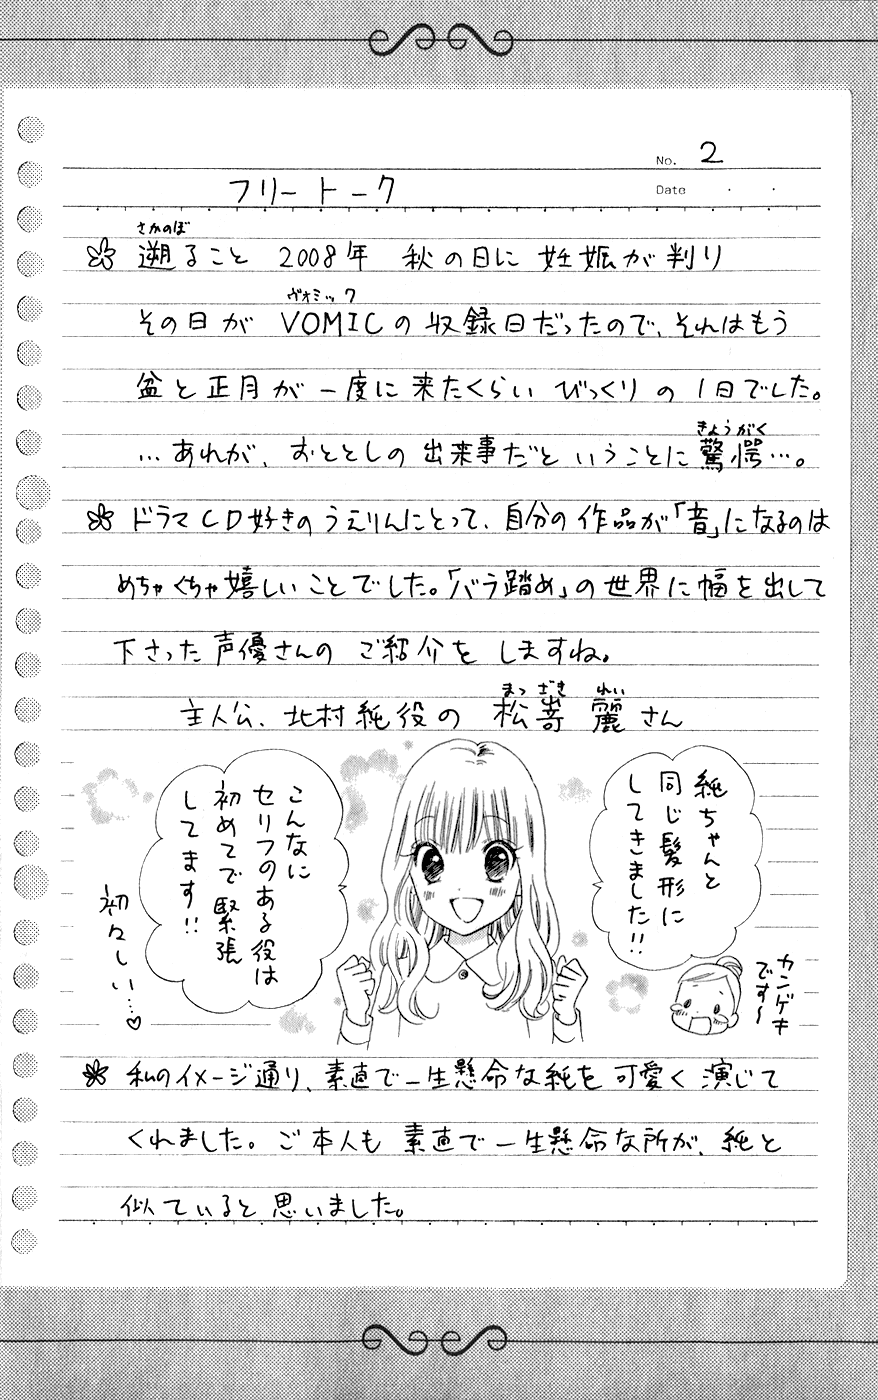 No. 2
フリートーク
Date ・ ・
さかのぼ
遡ること 2008年 秋の日に 妊娠が判り
ヴォミック
その日が VOMICの収録日だったので、それはもう
盆と正月が一度に来たくらい びっくりの1日でした。
きょうがく
…あれが、おととしの出来事だということに驚愕…。
ドラマCD好きのうえりんにとって、自分の作品が「音」になるのは
めちゃくちゃ嬉しいことでした。「バラ踏め」の世界に幅を出して
下さった声優さんの ご紹介を しますね。
まつざき れい
主人公、北村純役の 松嵜 麗さん
純ちゃんと
同じ髪形に
してきました!!
こんなに
セリフのある役は
初めてで緊張
してます!!
初々しい…♡
カンゲキ
です〜
私のイメージ通り、素直で一生懸命な純を可愛く演じて
くれました。ご本人も素直で一生懸命な所が、純と
似ていると思いました。